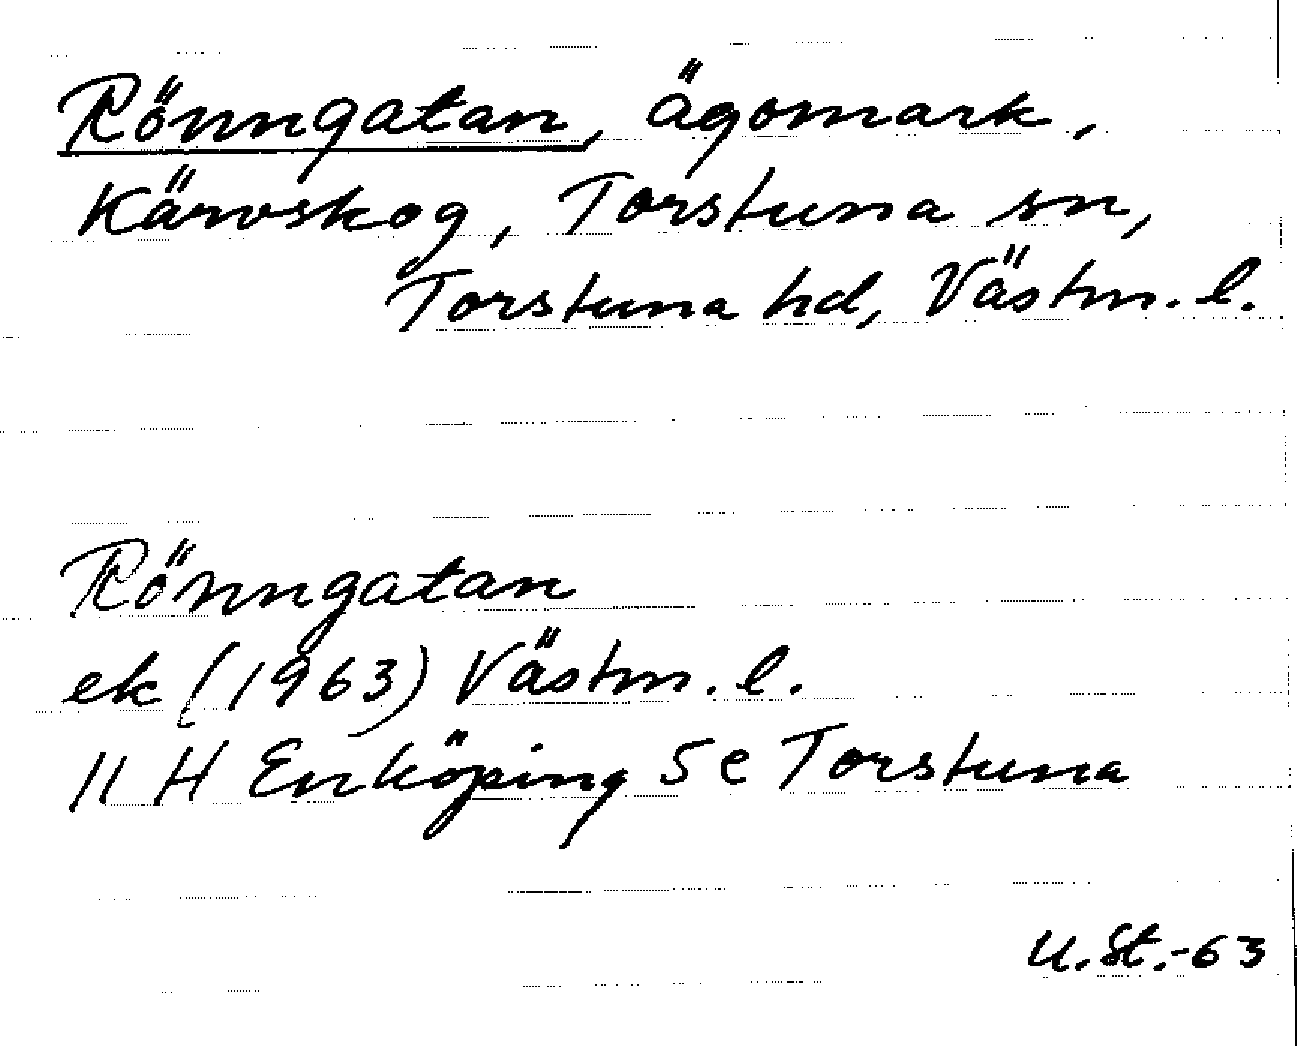 Rönngatan, ägomark,
Kärvskog, Torstuna sn,
Torstuna hd, Västm. l.
Rönngatan
ek (1963) Västm. l.
11 H Enköping 5 e Torstuna
U. St. -63